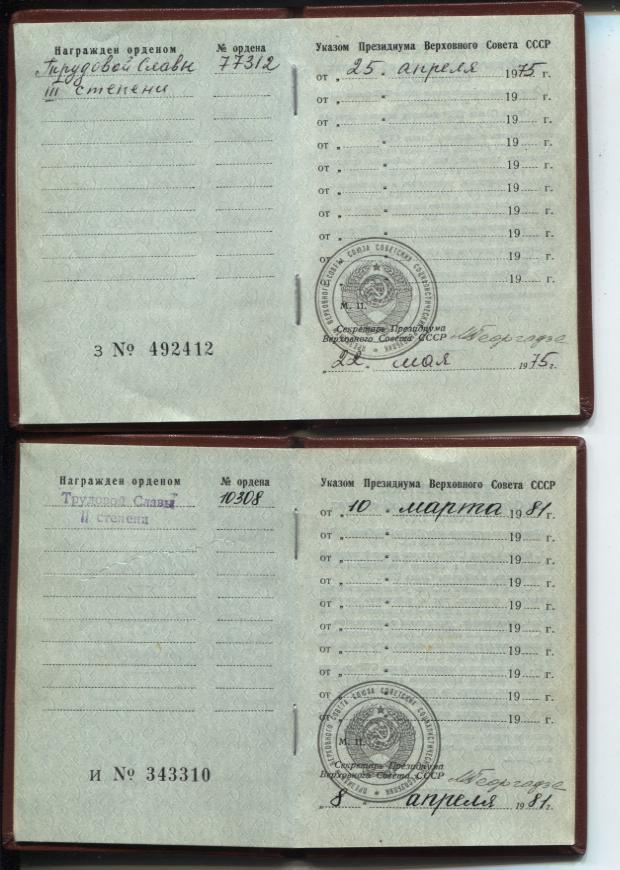 Награжден орденом
№ ордена
Трудовой Славы
77312
III степени
З № 492412
Указом Президиума Верховного Совета СССР
от „ 25 “ апреля 1975 г.
от „ “ 19 г.
от „ “ 19 г.
от „ “ 19 г.
от „ “ 19 г.
от „ “ 19 г.
от „ “ 19 г.
от „ “ 19 г.
от „ “ 19 г.
от „ “ 19 г.
М. П.
Секретарь Президиума
Верховного Совета СССР
МГеоргадзе
„ 22 “ мая 1975 г.
Награжден орденом
№ ордена
Трудовой Славы
10308
II степени
И № 343310
Указом Президиума Верховного Совета СССР
от „ 10 “ марта 1981 г.
от „ “ 19 г.
от „ “ 19 г.
от „ “ 19 г.
от „ “ 19 г.
от „ “ 19 г.
от „ “ 19 г.
от „ “ 19 г.
от „ “ 19 г.
от „ “ 19 г.
М. П.
Секретарь Президиума
Верховного Совета СССР
МГеоргадзе
„ 8 “ апреля 1981 г.